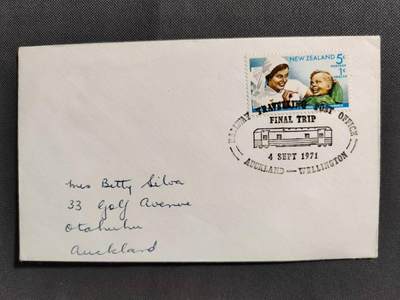 NEW ZEALAND 5c
1c
RAILWAY TRAVELLING POST OFFICE
FINAL TRIP
4 SEPT 1971
AUCKLAND — WELLINGTON
Mrs Betty Silva
33 Golf Avenue
Otahuhu
Auckland